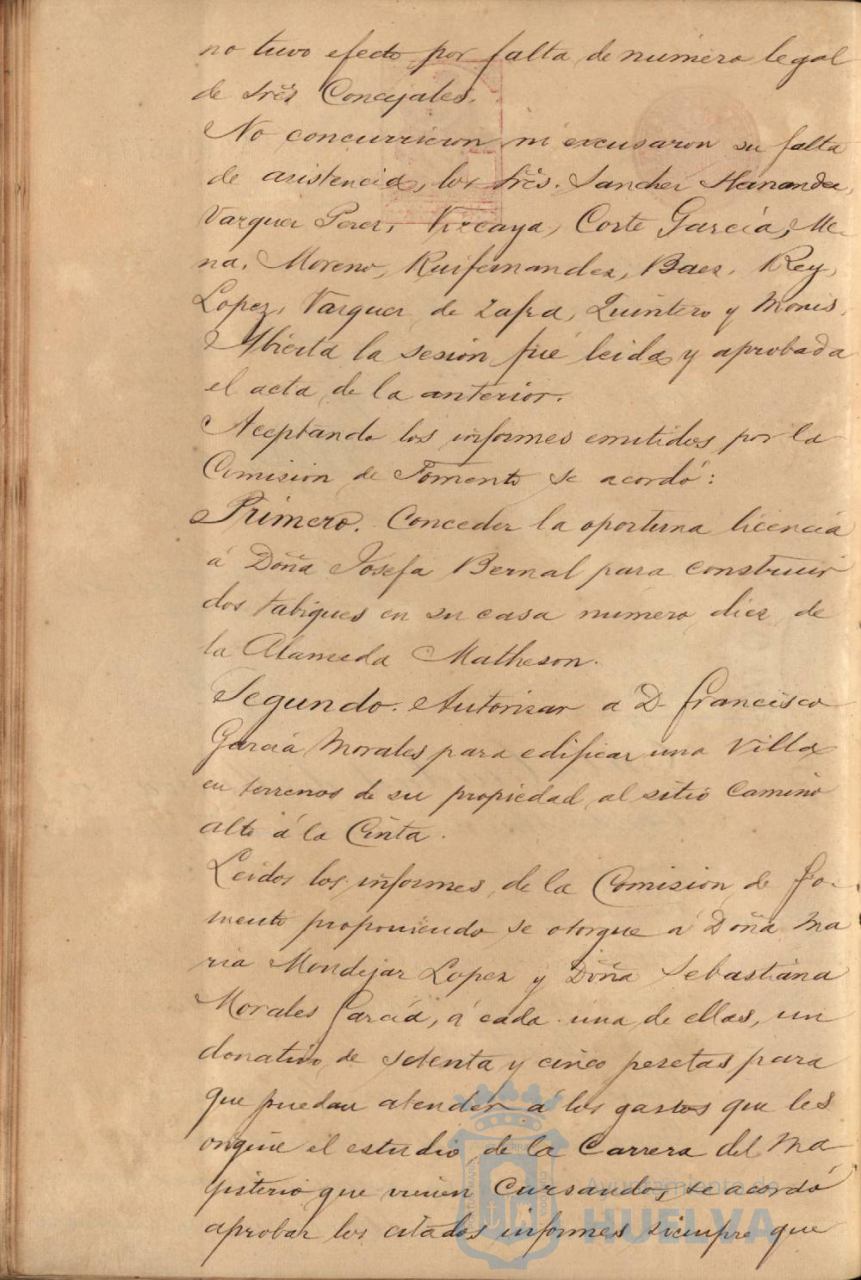 no tuvo efecto por falta de número legal
de Srês Concejales.
No concurrieron ni excusaron su falta
de asistencia, los Srês. Sanchez Hernandez,
Vazquez Perez, Vizcaya, Corte García, Me-
na, Moreno, Ruifernandez, Baez, Rey,
Lopez, Vazquez de Zafra, Quintero y Monis.
Abierta la sesión fué leida y aprobada
el acta de la anterior.
Aceptando los informes emitidos por la
Comision de Fomento se acordó:
Primero. Conceder la oportuna licencia
á Doña Josefa Bernal para construir
dos tabiques en su casa número diez de
la Alameda Matheson.
Segundo. Autorizar á D. Francisco
García Morales para edificar una Villa
en terrenos de su propiedad, al sitio Camino
alto á la Cinta.
Leidos los informes de la Comision de Fo-
mento proponiendo se otorgue á Doña Ma
ria Mondejar Lopez y Doña Sebastiana
Morales García, á cada una de ellas, un
donativo de setenta y cinco pesetas para
que puedan atender á los gastos que les
origine el estudio de la Carrera del Ma-
gisterio que vienen cursando, se acordó
aprobar los citados informes siempre que
Ayuntamiento de
HUELVA